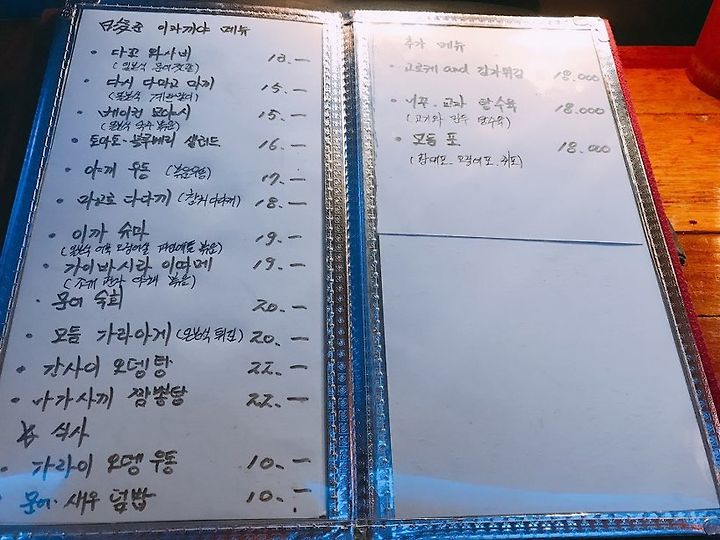 이자까야 메뉴
• 다꼬 와사비 18.—
(일본식 문어젓갈)
• 다시 다마고 마끼 15.—
(일본식 계란말이)
• 베이컨 모다시 15.—
(일본식 숙주 볶음)
• 토마토·블루베리 샐러드 16.—
• 야끼 우동 (볶음우동) 17.—
• 마구로 다다끼 (참치 다다끼) 18.—
• 이까 슈마 19.—
(일본식 오징어살 볶음)
• 가이바시라 이따메 19.—
(조개 관자 야채 볶음)
• 문어 숙회 20.—
• 모듬 가라아게 (일본식 튀김) 20.—
• 간사이 오뎅탕 22.—
• 나가사끼 짬뽕탕 22.—
식사
• 가라이 오뎅 우동 10.—
• 문어·새우 덮밥 10.—
추가 메뉴
고로케 and 감자튀김 18.000
교자 탕수육 18.000
(고기와 만두 탕수육)
• 모듬 포 18.000
(황태포, 오징어포, 쥐포)